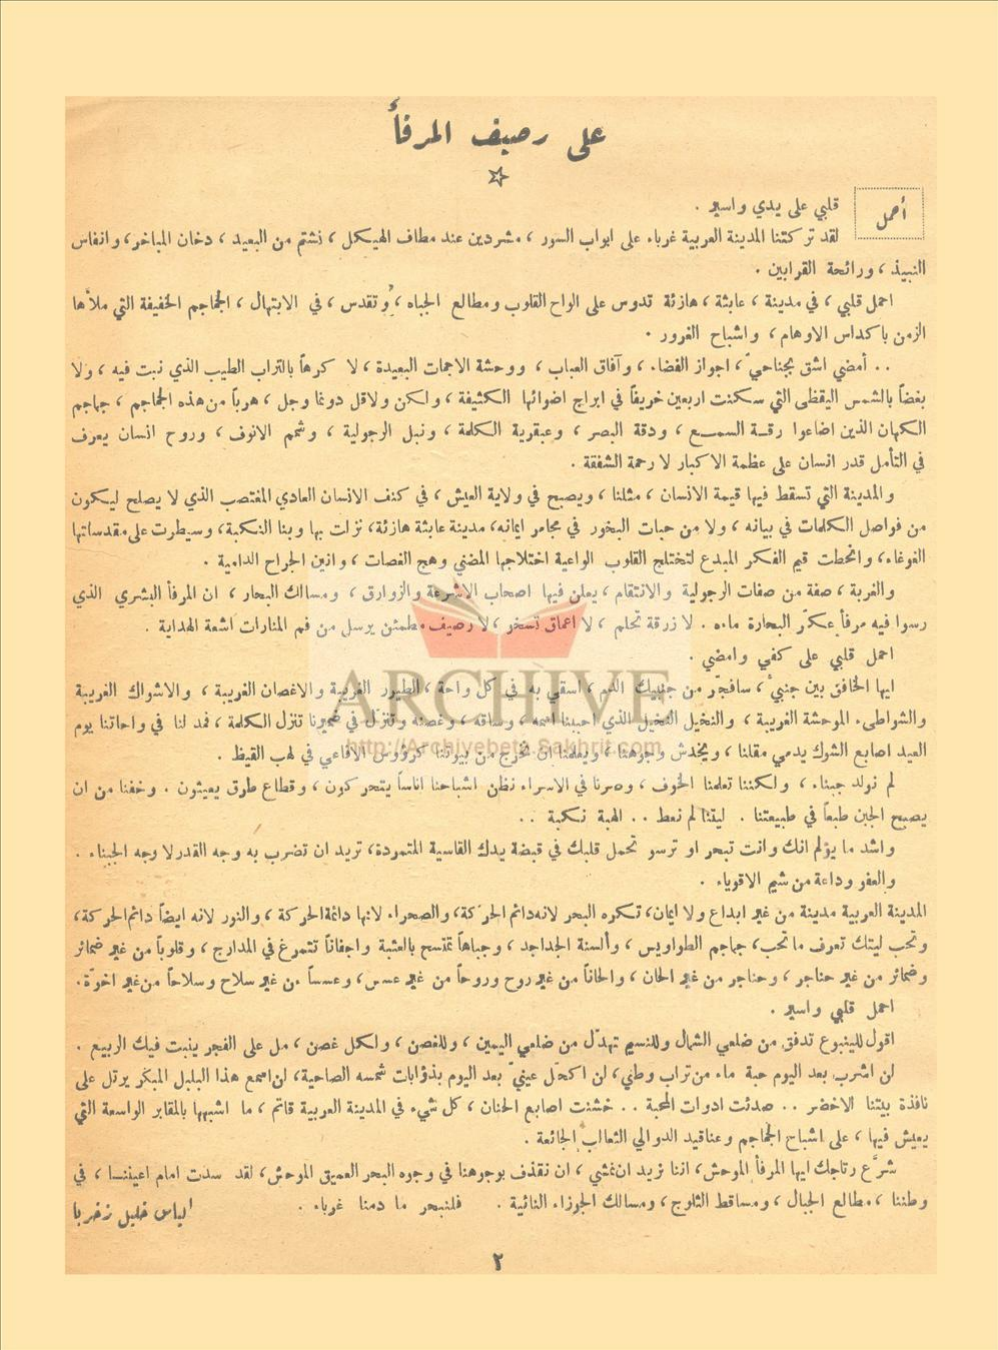 على رصيف المرفأ
أحمل
قلبي على يدي واسير .
لقد تركتنا المدينة العربية غرباء على ابواب السور ، مشردين عند مطاف الهيكل ، نشتم من البعيد ، دخان المباخر، وانفاس
النبيذ ، ورائحة القرابين .
احمل قلبي ، في مدينة ، عابثة ، هازئة تدوس على الواح القلوب ومطالع الجباه ، وتقدس ، في الابتهال ، الجماجم الخفيفة التي ملأها
الزمن باكداس الاوهام ، واشباح الغرور .
. . أمضي اشق بجناحيّ ، اجواز الفضاء ، وآفاق العباب ، ووحشة الاجمات البعيدة ، لا كرهاً بالتراب الطيب الذي نبت فيه ، ولا
بغضاً بالشمس اليقظى التي سكنت اربعين خريفاً في ابراج اضوائها الكثيفة ، ولكن ولاقل دونما وجل ، هرباً من هذه الجماجم ، جماجم
الكهان الذين اضاعوا رقة السمع ، ودقة البصر ، وعبقرية الكلمة ، ونبل الرجولية ، وشمم الانوف ، وروح انسان يعرف
في التأمل قدر انسان على عظمة الاكبار لا رحمة الشفقة .
والمدينة التي تسقط فيها قيمة الانسان ، مثلنا ، ويصبح في ولاية العيش ، في كنف الانسان العادي المغتصب الذي لا يصلح ليكون
من فواصل الكلمات في بيانه ، ولا من حبات البخور في مجامر ايمانه، مدينة عابثة هازئة، نزلت بها وبنا النكبة، وسيطرت على مقدساتها
الغوغاء، وانحطت قيم الفكر المبدع لتختلج القلوب الواعية اختلاجها المضني وهج الغصات ، وانين الجراح الدامية .
والغربة ، صفة من صفات الرجولية والانتقام ، يعلن فيها اصحاب الاشرعة والزوارق ، ومسالك البحار ، ان المرفأ البشري الذي
رسوا فيه مرفأ عكّر البحارة ماءه . لا زرقة تحلم ، لا اعماق تسخر ، لا رصيف مطمئن يرسل من فم المنارات اشعة الهداية .
احمل قلبي على كفي وامضي .
ايها الخافق بين جنبيّ ، سافجّر من جنبيك النور ، اسقي به في كل واحة ، الطيور الغريبة والاغصان الغريبة ، والاشواك الغريبة
والشواطىء الموحشة الغريبة ، والنخيل النخيل الذي احببنا اسمه ، وساقه ، وغصنه وتنزل في ضميرنا تنزل الكلمة ، فمد لنا في واحاتنا يوم
العيد اصابع الشوك يدمي مقلنا ، ويخدش وجوهنا ، ويعلمنا ان نخرج من بيوتنا كرؤوس الافاعي في لهب القيظ .
لم نولد جبناء ، ولكننا تعلمنا الخوف ، وصرنا في الاسراء نظن اشباحنا اناساً يتحركون ، وقطاع طرق يعيثون . وخفنا من ان
يصبح الجبن طبعاً في طبيعتنا . ليتنا لم نعط . . الهبة نكبة . .
واشد ما يؤلم انك وانت تبحر او ترسو تحمل قلبك في قبضة يدك القاسية المتمردة، تريد ان تضرب به وجه القدر لا وجه الجبناء . .
والعفو وداعة من شيم الاقوياء .
المدينة العربية مدينة من غير ابداع ولا ايمان، تكره البحر لانه دائم الحركة، والصحراء لانها دائمة الحركة ، والنور لانه ايضاً دائم الحركة،
وتحب ليتك تعرف ما تحب، جماجم الطواويس ، وألسنة الجداجد ، وجباهاً تتمسح بالعتبة واجفاناً تتمرغ في المدارج ، وقلوباً من غير ضمائر
وضمائر من غير حناجر ، وحناجر من غير الحان ، والحاناً من غير روح وروحاً من غير عسس، وعسساً من غير سلاح وسلاحاً من غير اخوّة.
احمل قلبي واسير .
اقول للينبوع تدفق من ضلعي الشمال وللنسيم تهدّل من ضلعي اليمين ، وللغصن ، ولكل غصن ، مل على الفجر ينبت فيك الربيع .
لن اشرب بعد اليوم حبة ماء من تراب وطني، لن اكحّل عينيّ بعد اليوم بذؤابات شمسه الصاحية، لن اسمع هذا البلبل المبكر يرتل على
نافذة بيتنا الاخضر . . صدئت ادوات المحبة . . خشنت اصابع الحنان ، كل شيء في المدينة العربية قاتم ، ما اشبهها بالمقابر الواسعة التي
يعيش فيها ، على اشباح الجماجم وعناقيد الدوالي الثعالب الجائعة .
شرّع رتاجك ايها المرفأ الموحش، اننا نريد ان نمشي ، ان نقذف بوجوهنا في وجوه البحر العميق الموحش، لقد سدت امام اعيننا ، في
وطننا ، مطالع الجبال ، ومساقط الثلوج ، ومسالك الجوزاء النائية . فلنبحر ما دمنا غرباء .
الياس خليل زخريا
٢
ARCHIVE
http://Archivebeta.Sakhrit.com